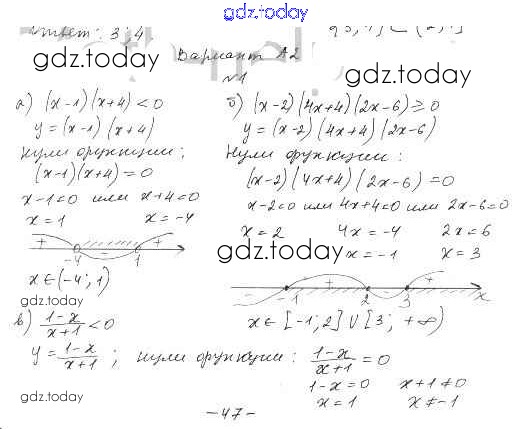 gdz.today
Ответ: 3; 4
gdz.today
Вариант А2
gdz.today
№1
а) (x-1)(x+4)<0
y=(x-1)(x+4)
Нули функции:
(x-1)(x+4)=0
x-1=0 или x+4=0
x=1 x=-4
+ - +
-4 1
x∈(-4; 1)
gdz.today
б) (x-2)(4x+4)(2x-6)≥0
y=(x-2)(4x+4)(2x-6)
Нули функции:
(x-2)(4x+4)(2x-6)=0
x-2=0 или 4x+4=0 или 2x-6=0
x=2 4x=-4 2x=6
gdz.today
x=-1 x=3
- + - +
-1 2 3 x
x∈[-1; 2]∪[3; +∞)
в) (1-x)/(x+1)<0
gdz.today
y=(1-x)/(x+1); нули функции: (1-x)/(x+1)=0
1-x=0 x+1≠0
x=1 x≠-1
gdz.today
-47-